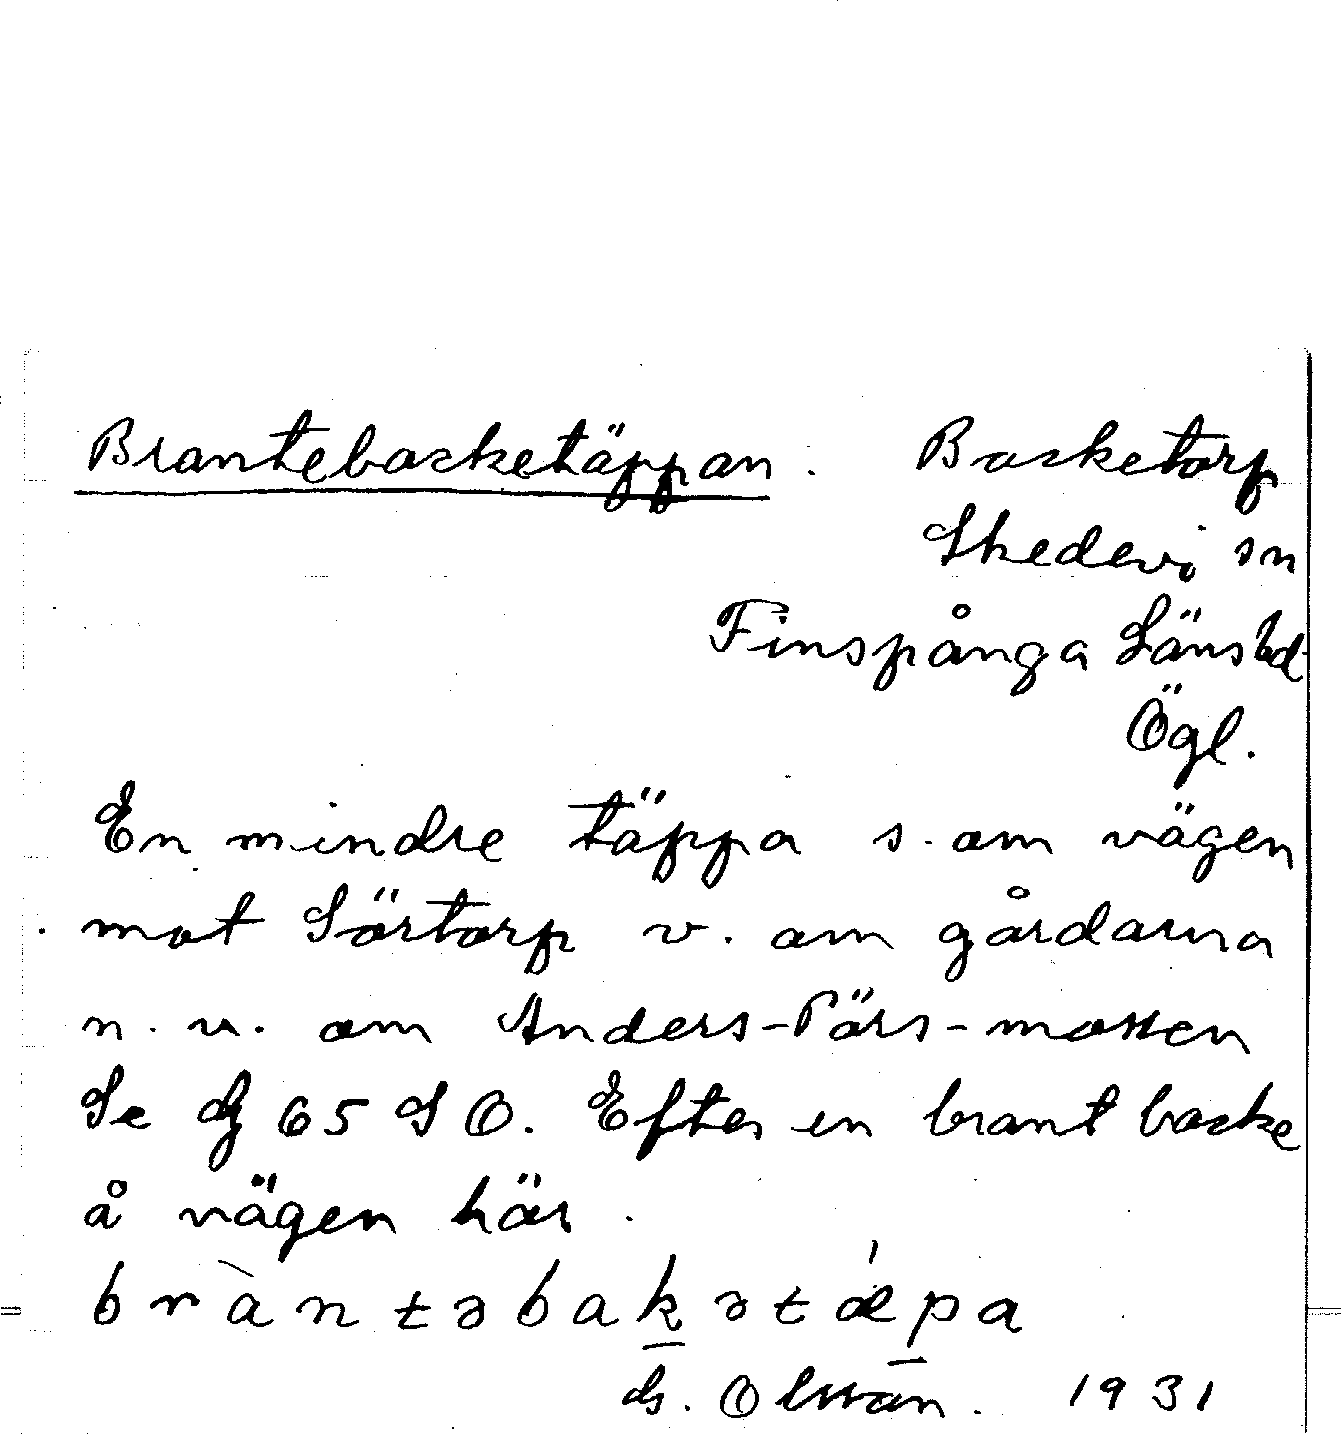 Brantebacketäppan. Backetorp
Skedevi sn
Finspånga Länshd
Ögl.
En mindre täppa s. om vägen
mot Sörtorp v. om gårdarna
n. v. om Anders-Pärs-mossen
Se 65 SO. Efter en brant backe
å vägen här.
bràntəbak̲ətǽp̲a
G. Olsson. 1931